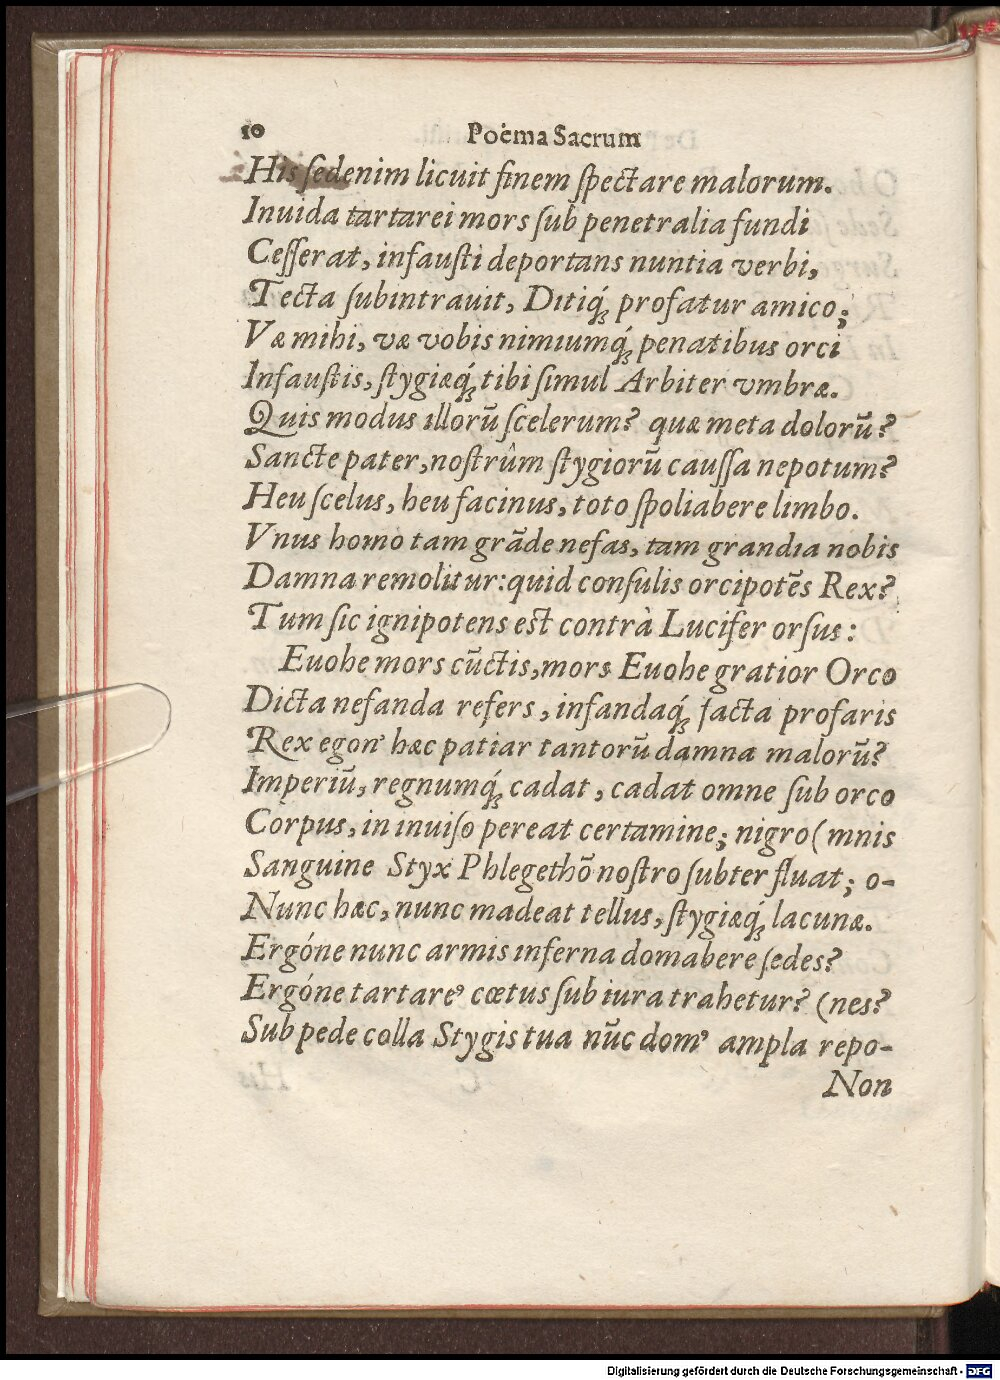 10 Poëma Sacrum
His sedenim licuit finem spectare malorum.
Inuida tartarei mors sub penetralia fundi
Cesserat, infausti deportans nuntia verbi,
Tecta subintrauit, Ditiq́; profatur amico;
Væ mihi, væ vobis nimiumq́; penatibus orci
Infaustis, stygiæq́; tibi simul Arbiter vmbræ.
Quis modus illorū scelerum? quæ meta dolorū?
Sancte pater, nostrûm stygiorū caussa nepotum?
Heu scelus, heu facinus, toto spoliabere limbo.
Vnus homo tam grāde nefas, tam grandia nobis
Damna remolitur: quid consulis orcipotēs Rex?
Tum sic ignipotens est contrà Lucifer orsus:
Euohe mors cūctis, mors Euohe gratior Orco
Dicta nefanda refers, infandaq́; facta profaris
Rex egon' hæc patiar tantorū damna malorū?
Imperiū, regnumq́; cadat, cadat omne sub orco
Corpus, in inuiso pereat certamine; nigro (mnis
Sanguine Styx Phlegethō nostro subter fluat; o-
Nunc hæc, nunc madeat tellus, stygiæq́; lacunæ.
Ergóne nunc armis inferna domabere sedes?
Ergóne tartareꝰ cœtus sub iura trahetur? (nes?
Sub pede colla Stygis tua nūc domꝰ ampla repo-
Non
Digitalisierung gefördert durch die Deutsche Forschungsgemeinschaft - DFG